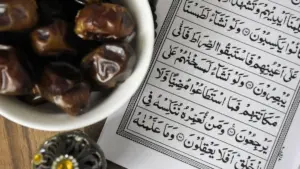 أَيْدِيهِمْ وَتَشْهَدُ
يَكْسِبُونَ ۝ وَلَوْ نَشَآءُ لَطَمَسْنَا
عَلَىٰٓ أَعْيُنِهِمْ فَٱسْتَبَقُوا۟ ٱلصِّرَٰطَ فَأَنَّىٰ
يُبْصِرُونَ ۝ وَلَوْ نَشَآءُ لَمَسَخْنَٰهُمْ عَلَىٰ
مَكَانَتِهِمْ فَمَا ٱسْتَطَٰعُوا۟ مُضِيًّا وَلَا
يَرْجِعُونَ ۝ وَمَن نُّعَمِّرْهُ نُنَكِّسْهُ فِى
ٱلْخَلْقِ أَفَلَا يَعْقِلُونَ ۝ وَمَا عَلَّمْنَٰهُ